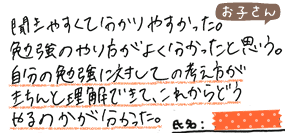 お子さん
聞きやすくて分かりやすかった。
勉強のやり方がよく分かったと思う。
自分の勉強に対しての考え方が
きちんと理解できて、これからどう
やるのかが分かった。
氏名: